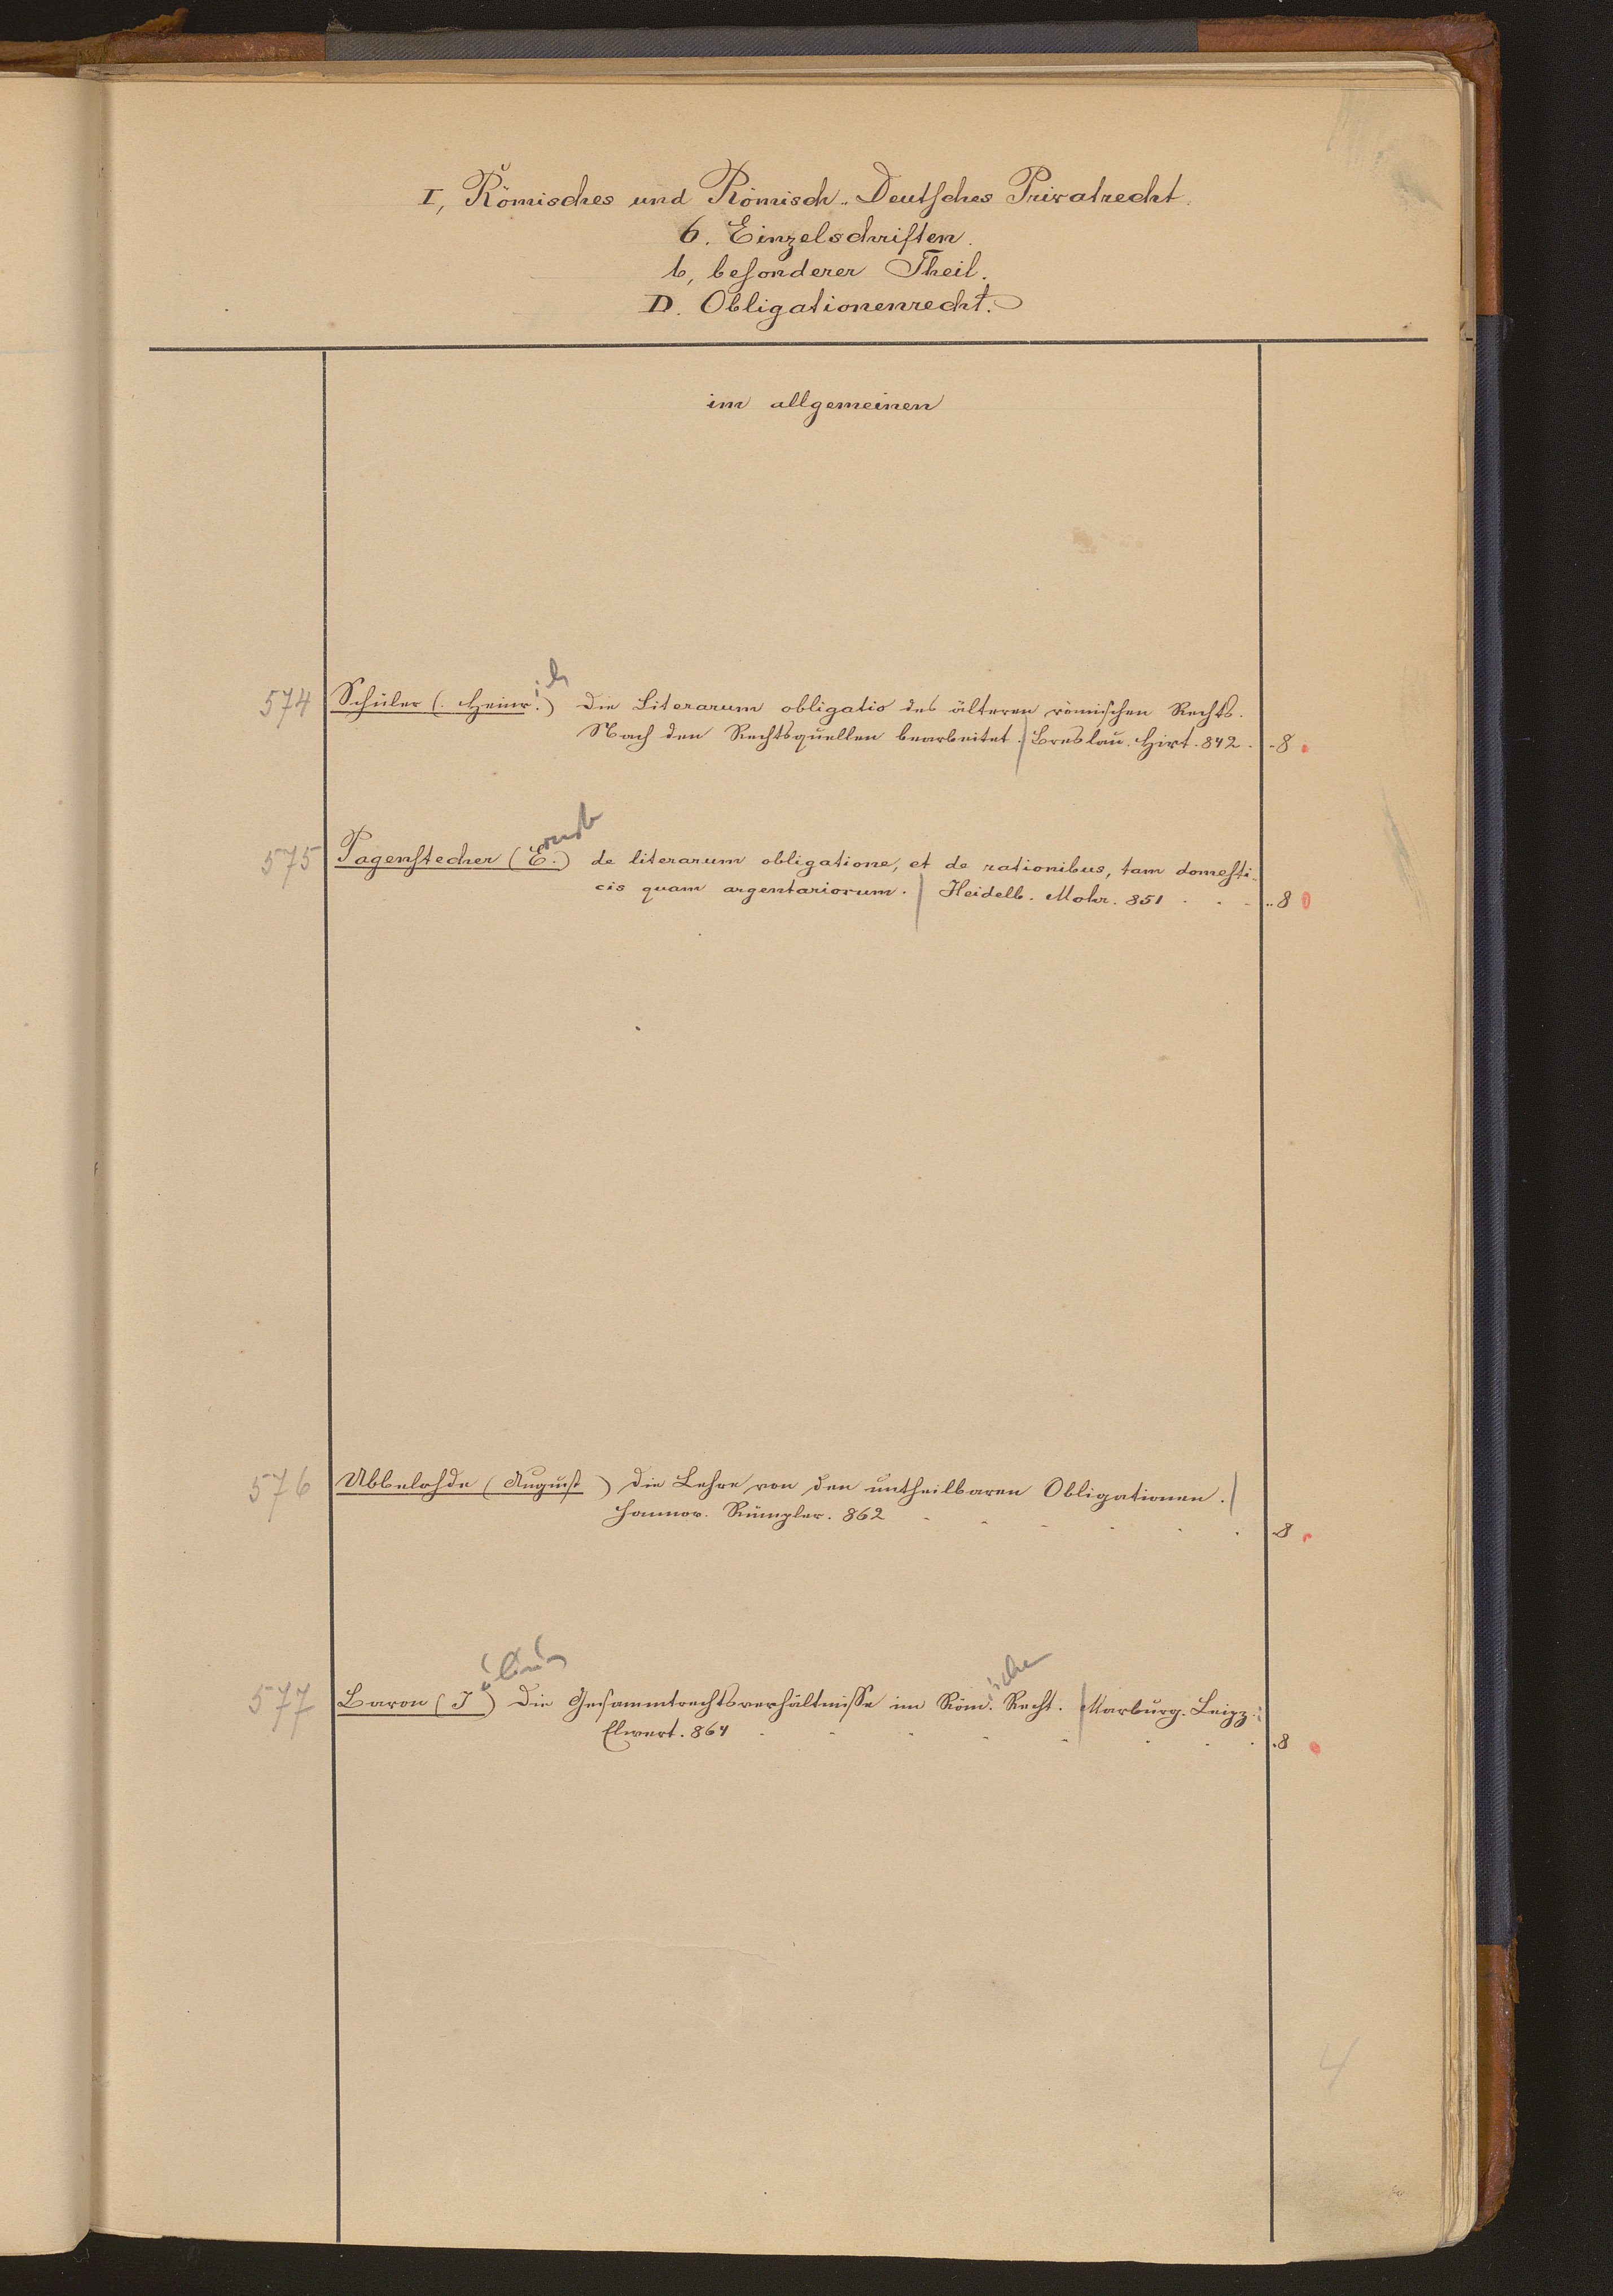 I, Römisches und Römisch-Deutsches Privatrecht.
6. Einzelschriften.
b, besonderer Theil.
D. Obligationenrecht.
im allgemeinen
574 Schüler (Heinr.ich) Die Literarum obligatio des älteren römischen Rechts.
Nach den Rechtsquellen bearbeitet. | Breslau. Hirt. 842. 8
575 Pagenstecher (E.rnst) de literarum obligatione, et de rationibus, tam domesti-
cis quam argentariorum. | Heidelb. Mohr. 851 . . . 8
576 Ubbelohde (August) Die Lehre von den untheilbaren Obligationen. |
Hannov. Rümpler. 862 . . . . . . 8
577 Baron (Julius) Die Gesammtrechtsverhältnisse im Röm.ischen Recht. | Marburg. Leipz.:
Elwert. 864 . . . . . . . . 8
4